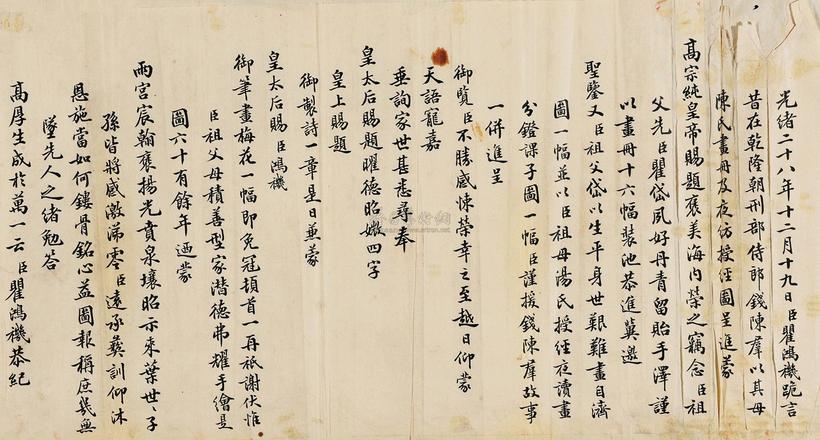 光緒二十八年十二月十九日臣瞿鴻禨跪言
昔在乾隆朝刑部侍郎錢陳羣以其母
陳氏畫冊及夜仿授經圖呈進蒙
高宗純皇帝賜題褒美海內榮之竊念臣祖
父先臣瞿岱夙好丹青留貽手澤謹
以畫冊十六幅裝池恭進冀邀
聖鑒又臣祖父岱以生平身世艱難畫自濟
圖一幅並以臣祖母湯氏授經夜讀畫
分鐙課子圖一幅臣謹援錢陳羣故事
一併進呈
御覽臣不勝感悚榮幸之至越日仰蒙
天語寵嘉
垂詢家世甚悉尋奉
皇太后賜題曜德昭媺四字
皇上賜題
御製詩一章是日並蒙
皇太后賜臣鴻禨
御筆畫梅花一幅即免冠頓首一再祇謝伏惟
臣祖父母積善型家潛德弗耀手繪是
圖六十有餘年迺蒙
兩宮宸翰褒揚光賁泉壤昭示來葉世世子
孫皆將感激涕零臣遠承彝訓仰沐
恩施當如何鏤骨銘心益圖報稱庶幾無
墜先人之緒勉答
高厚生成於萬一云臣瞿鴻禨恭紀